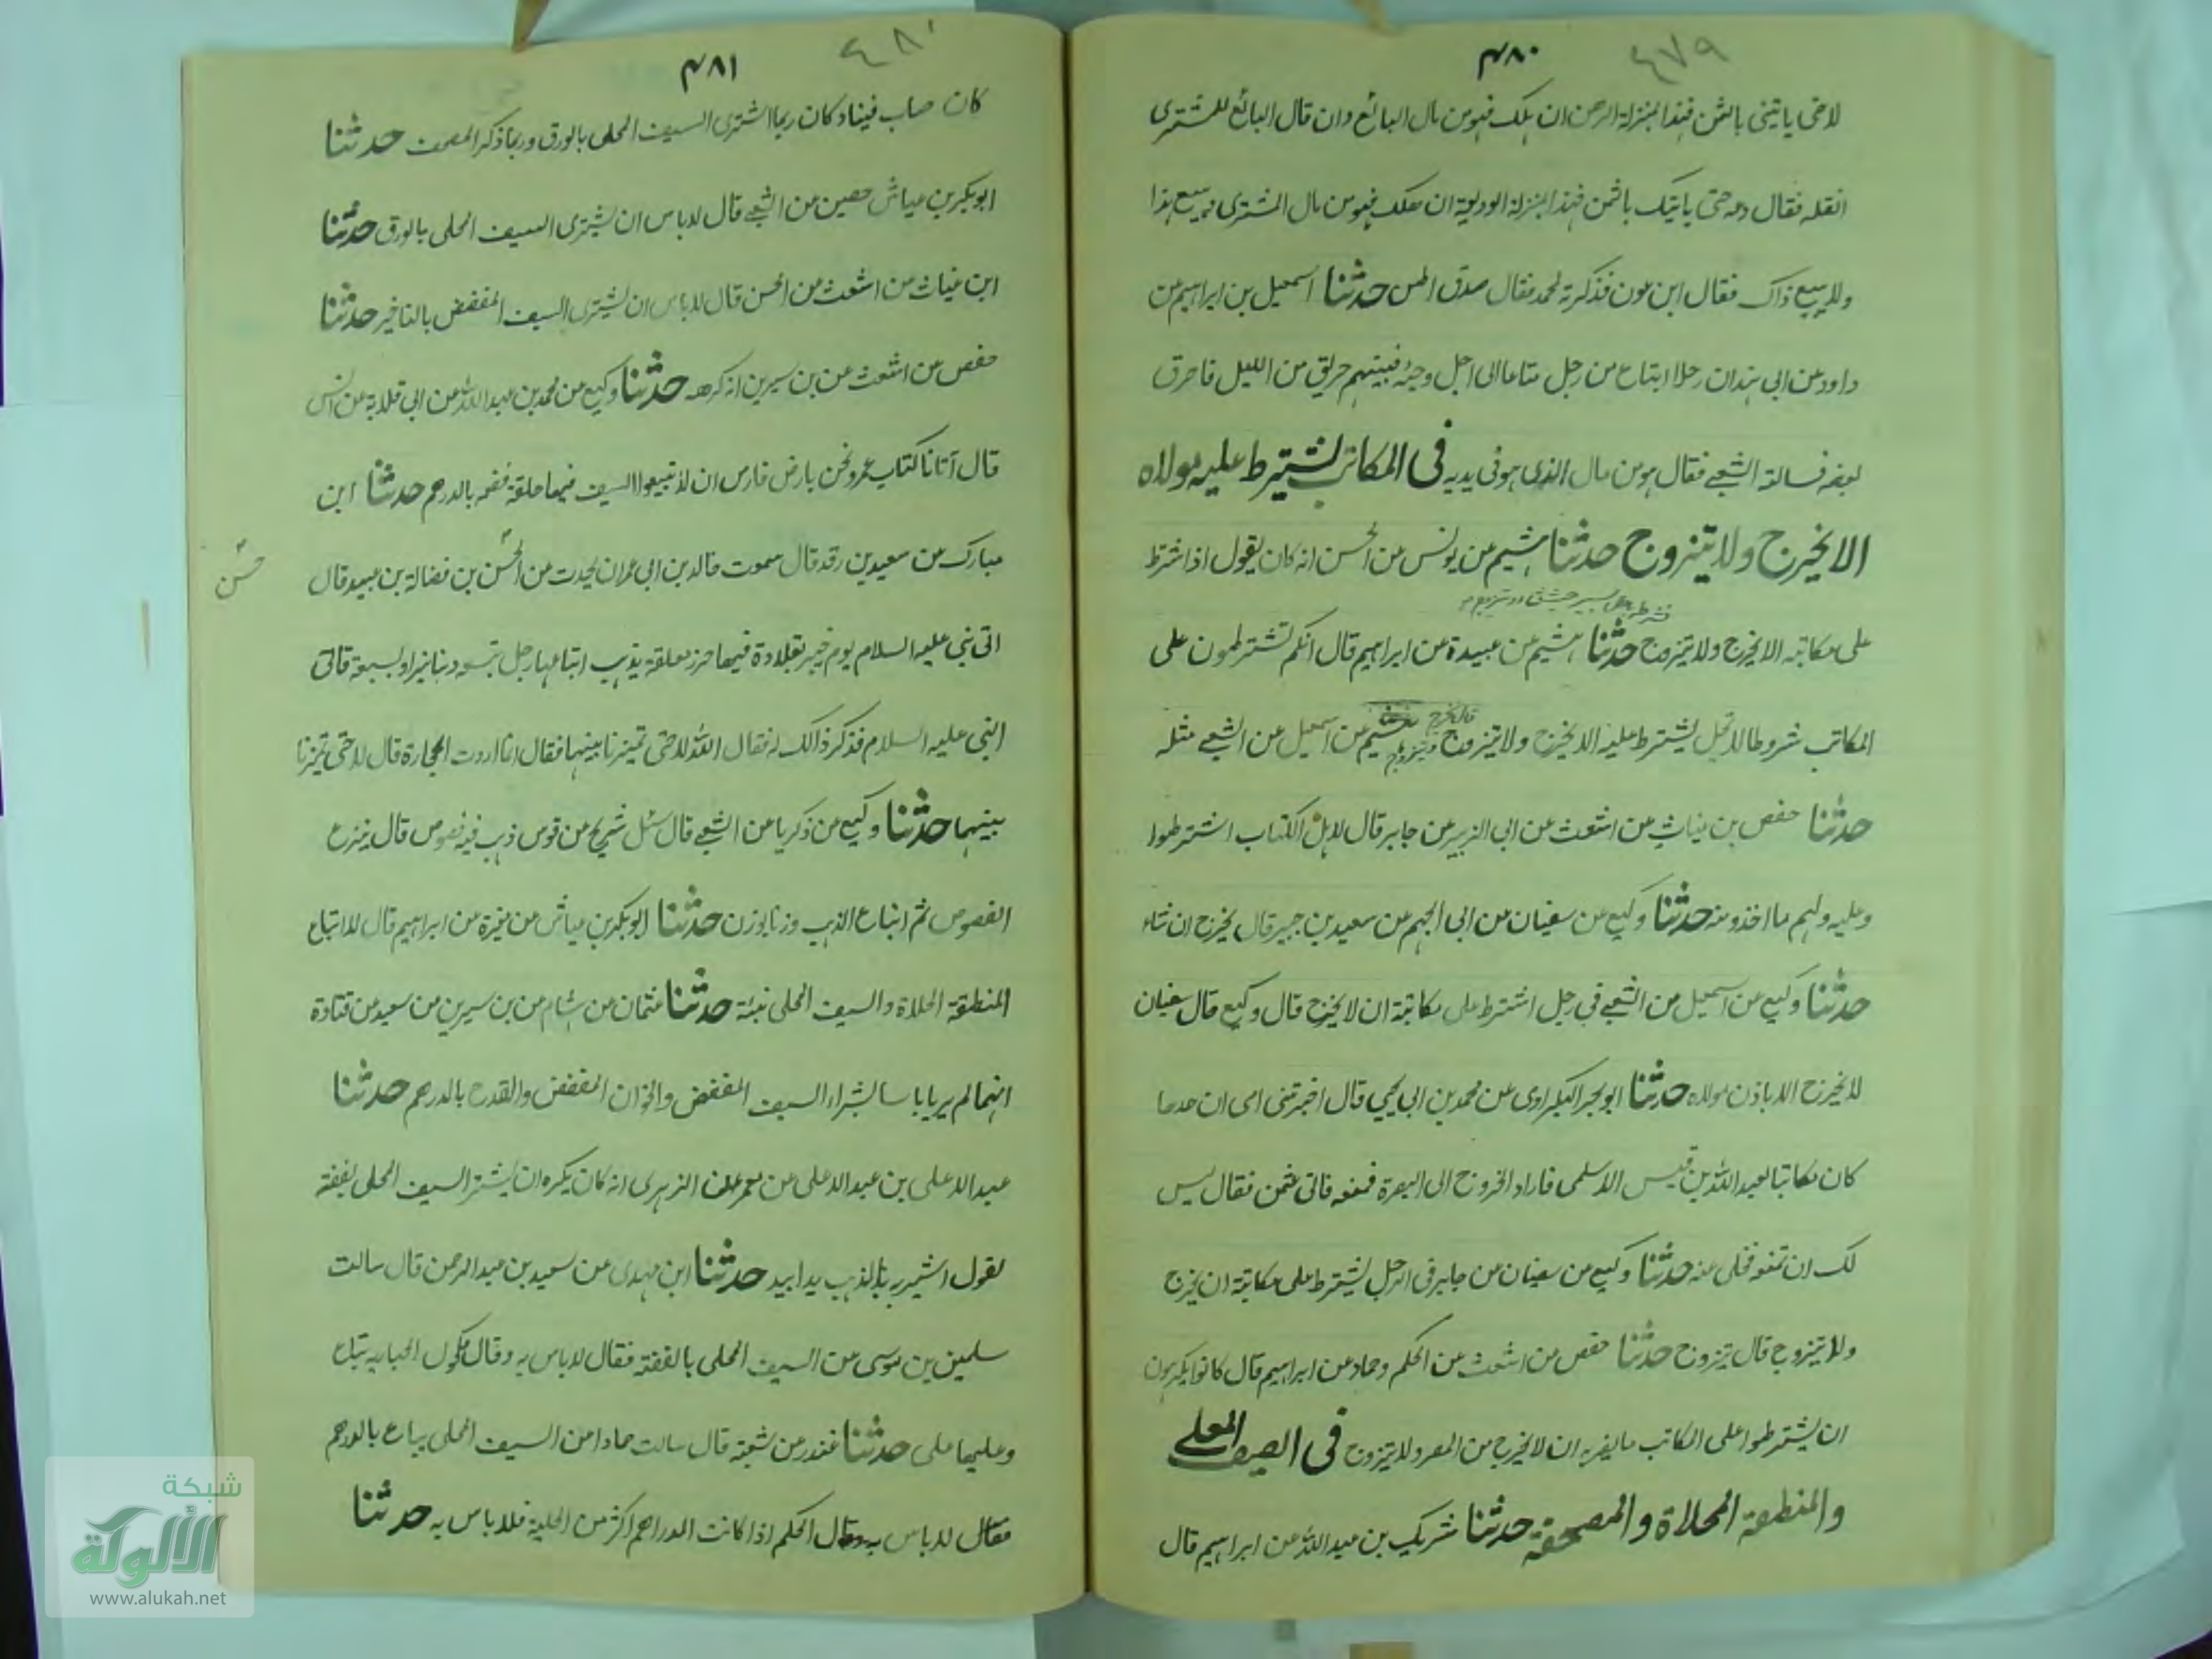 ٤٧٩
٤٨٠
لا حتى ياتينى بالثمن فهذا بمنزلة الرهن ان هلك فهو من مال البائع وان قال البائع للمشترى
انقله فقال دعه حتى ياتيك بالثمن فهذا بمنزلة الوديعة ان هلك فهو من مال المشترى يبيع هذا
ولا يبيع ذاك فقال ابن عون فذكرته لمحمد فقال صدق الحسن حدثنا اسمعيل بن ابراهيم عن
داود عن ابى هند ان رجلا ابتاع من رجل متاعا الى اجل فبيتهم حريق من الليل فاحرق
بعضه فسالت الشعبى فقال هو من مال الذى هو فى يديه فى المكاتب يشترط عليه مولاه
الا يخرج ولا يتزوج حدثنا هشيم عن يونس عن الحسن انه كان يقول اذا اشترط
على مكاتبه الا يخرج ولا يتزوج حدثنا هشيم عن عبيدة عن ابراهيم قال انكم تشترطون على
المكاتب شروطا لا تحل يشترط عليه الا يخرج ولا يتزوج قال يخرج ويتزوج هشيم عن اسمعيل عن الشعبى مثله
حدثنا حفص بن غياث عن اشعث عن ابى الزبير عن جابر قال لاهل الكتاب اشترطوا
وعليه ولهم ما اخذو منه حدثنا وكيع عن سفيان عن ابى الجهم عن سعيد بن جبير قال يخرج ان شاء
حدثنا وكيع عن اسمعيل عن الشعبى فى رجل اشترط على مكاتبة ان لا يخرج قال وكيع قال سفيان
لا يخرج الا باذن مولاه حدثنا ابو بحر البكراوى عن محمد بن ابى يحيى قال اخبرتنى امى ان جدها
كان مكاتبا لعبد الله بن قيس الاسلمى فاراد الخروج الى البصرة فمنعه فاتى عثمن فقال ليس
لك ان تمنعه فخلى عنه حدثنا وكيع عن سفيان عن جابر فى الرجل يشترط على مكاتبة ان يخرج
ولا يتزوج قال يتزوج حدثنا حفص عن اشعث عن الحكم وحماد عن ابراهيم قال كانوا يكرهون
ان يشترطوا على المكاتب ما يضر به ان لا يخرج من المصر ولا يتزوج فى السيف المحلى
والمنطقة المحلاة والمصحف حدثنا شريك بن عبد الله عن ابراهيم قال
٤٨٠
٤٨١
كان خباب قينا وكان ربما اشترى السيف المحلى بالورق وربما ذكر المصحف حدثنا
ابو بكر بن عياش حصين عن الشعبى قال لا باس ان يشترى السيف المحلى بالورق حدثنا
ابن غياث عن اشعث عن الحسن قال لا باس ان يشترى السيف المفضض بالتاخير حدثنا
حفص عن اشعث عن بن سيرين انه كرهه حدثنا وكيع عن محمد بن عبد الله عن ابى قلابة عن انس
قال اتانا كتاب عمر ونحن بارض فارس ان لا تبيعوا السيف فيها حلقة فضة بالدرهم حدثنا ابن
مبارك عن سعيد بن زيد قال سمعت خالد بن ابى عمران يحدث عن الحسن بن فضالة بن عبيد قال
حسن
اتى نبى عليه السلام يوم خيبر بقلادة فيها خرز معلقة بذهب ابتاعها رجل بتسعه دنانير او بسبعة فاتى
النبى عليه السلام فذكر ذلك له فقال الله لا حتى تميز ما بينهما فقال انما اردت الحجارة قال لا حتى تميز ما
بينهما حدثنا وكيع عن زكريا عن الشعبى قال سئل شريح عن قوس ذهب فيه فصوص قال ينزع
الفصوص ثم ابتاع الذهب وزنا بوزن حدثنا ابو بكر بن عياش عن مغيرة عن ابراهيم قال لا تباع
المنطقة المحلاة والسيف المحلى نسئة حدثنا عثمان عن هشام عن بن سيرين عن سعيد عن قتادة
انهما لم يريا باسا بشراء السيف المفضض والخوان المفضض والقدح بالدرهم حدثنا
عبد الاعلى بن عبد الاعلى عن معمر عن الزهرى انه كان يكره ان يشترى السيف المحلى بفضة
يقول اشتريه بالذهب يدا بيد حدثنا ابن مهدى عن سعيد بن عبد الرحمن قال سالت
سليمن بن موسى عن السيف المحلى بالفضة فقال لا باس به وقال مكحول الجارية تباع
وعليها حلى حدثنا غندر عن شعبة قال سالت حمادا عن السيف المحلى يباع بالدرهم
فقال لا باس به وقال الحكم اذا كانت الدراهم اكثر من الحلية فلا باس به حدثنا
شبكة
الألوكة
www.alukah.net